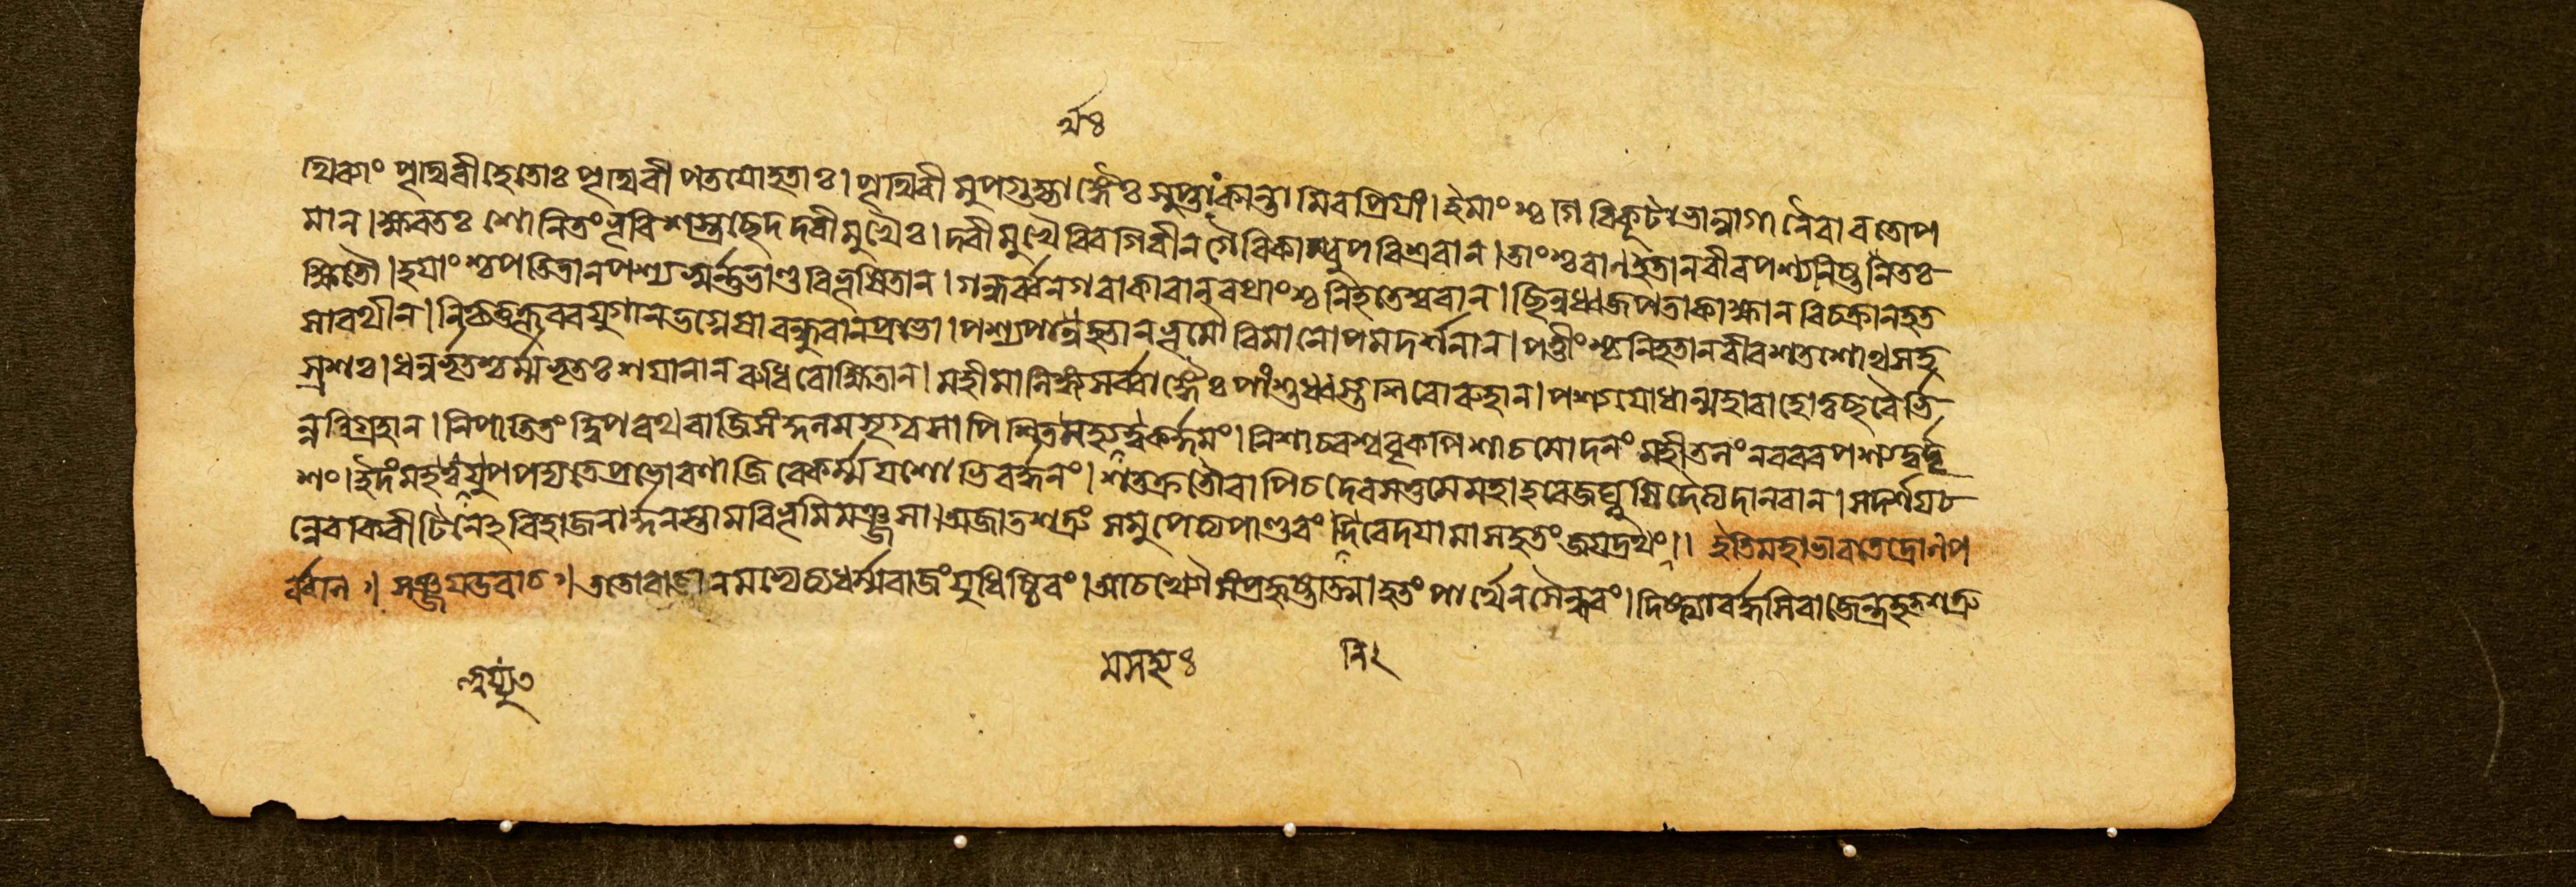 থিব্যাং পৃথিবীহেতোঃ পৃথিবীপতয়োহতাঃ। পৃথিবীমুপগুহ্যাঙ্গৈঃ সুপ্তাংকান্তামিবপ্রিয়াং। ইমাংশ্চগিরিকূটাভান্নাগানৈরাবতোপ
মান। ক্ষরতঃ শোনিতংভূরিশস্ত্রছেদদরীমুখৈঃ। দরীমুখৈরিবগিরীনগৈরিকাম্বুপরিশ্রবান। তাংশ্চবানহতানবীরপশ্যনিষ্টনতঃ
ক্ষিতৌ। হয়াংশ্চপতিতানপশ্যস্বর্ন্নভাণ্ডবিভূষিতান। গন্ধর্ব্বনগরাকারানরথাংশ্চনিহতেশ্বরান। ছিন্নধ্বজপতাকাক্ষানবিচক্রানহত
সারথীন। নিকৃত্তকূবরযুগানভগ্নেষাবন্ধুরানপ্রভো। পশ্যপার্থহতানভূমৌবিমানোপমদর্শনান। পত্তীংশ্চনিহতানবীরশতশোথসহ
স্রশঃ। ধনুর্ভৃতশ্চর্ম্মভৃতঃ শয়ানানরুধিরোক্ষিতান। মহীমালিঙ্গ্যসর্ব্বাঙ্গৈঃ পাংশুধ্বস্তশিরোরুহান। পশ্যযোধান্মহাবাহোত্বছরৈর্ভি
ন্নবিগ্রহান। নিপাতিতংদ্বিপরথবাজিসংকুলমসৃগ্বসাপিশিতসমৃদ্ধকর্দ্দমং। নিশাচরশ্ববৃকপিশাচমোদনংমহীতলংনরবরপশ্যদুর্দৃ
শং। ইদংমহত্ত্বয়্যুপপদ্যতেপ্রভোরণাজিরেকর্ম্মযশোভিবর্দ্ধনং। শতক্রতৌবাপিচদেবসত্তমেমহাহবেজঘ্নুষিদৈত্যদানবান। সদর্শয়
ন্নেবকিরীটিনেরিহাজনার্দ্দনস্তামরিভূমিমঞ্জসা। অজাতশত্রুং সমুপেত্যপাণ্ডবং নিবেদয়ামাসহতংজয়দ্রথং।। ইতিমহাভারতেদ্রোনপ
র্ব্বনি। সঞ্জয়উবাচ। ততোরাজানমভ্যেত্যধর্ম্মরাজংযুধিষ্ঠিরং। আচখ্যৌসংপ্রহৃষ্টাত্মাহতং পার্থেনসৈন্ধবং। দিষ্ট্যাবর্দ্ধসিরাজেন্দ্রহতশত্রু